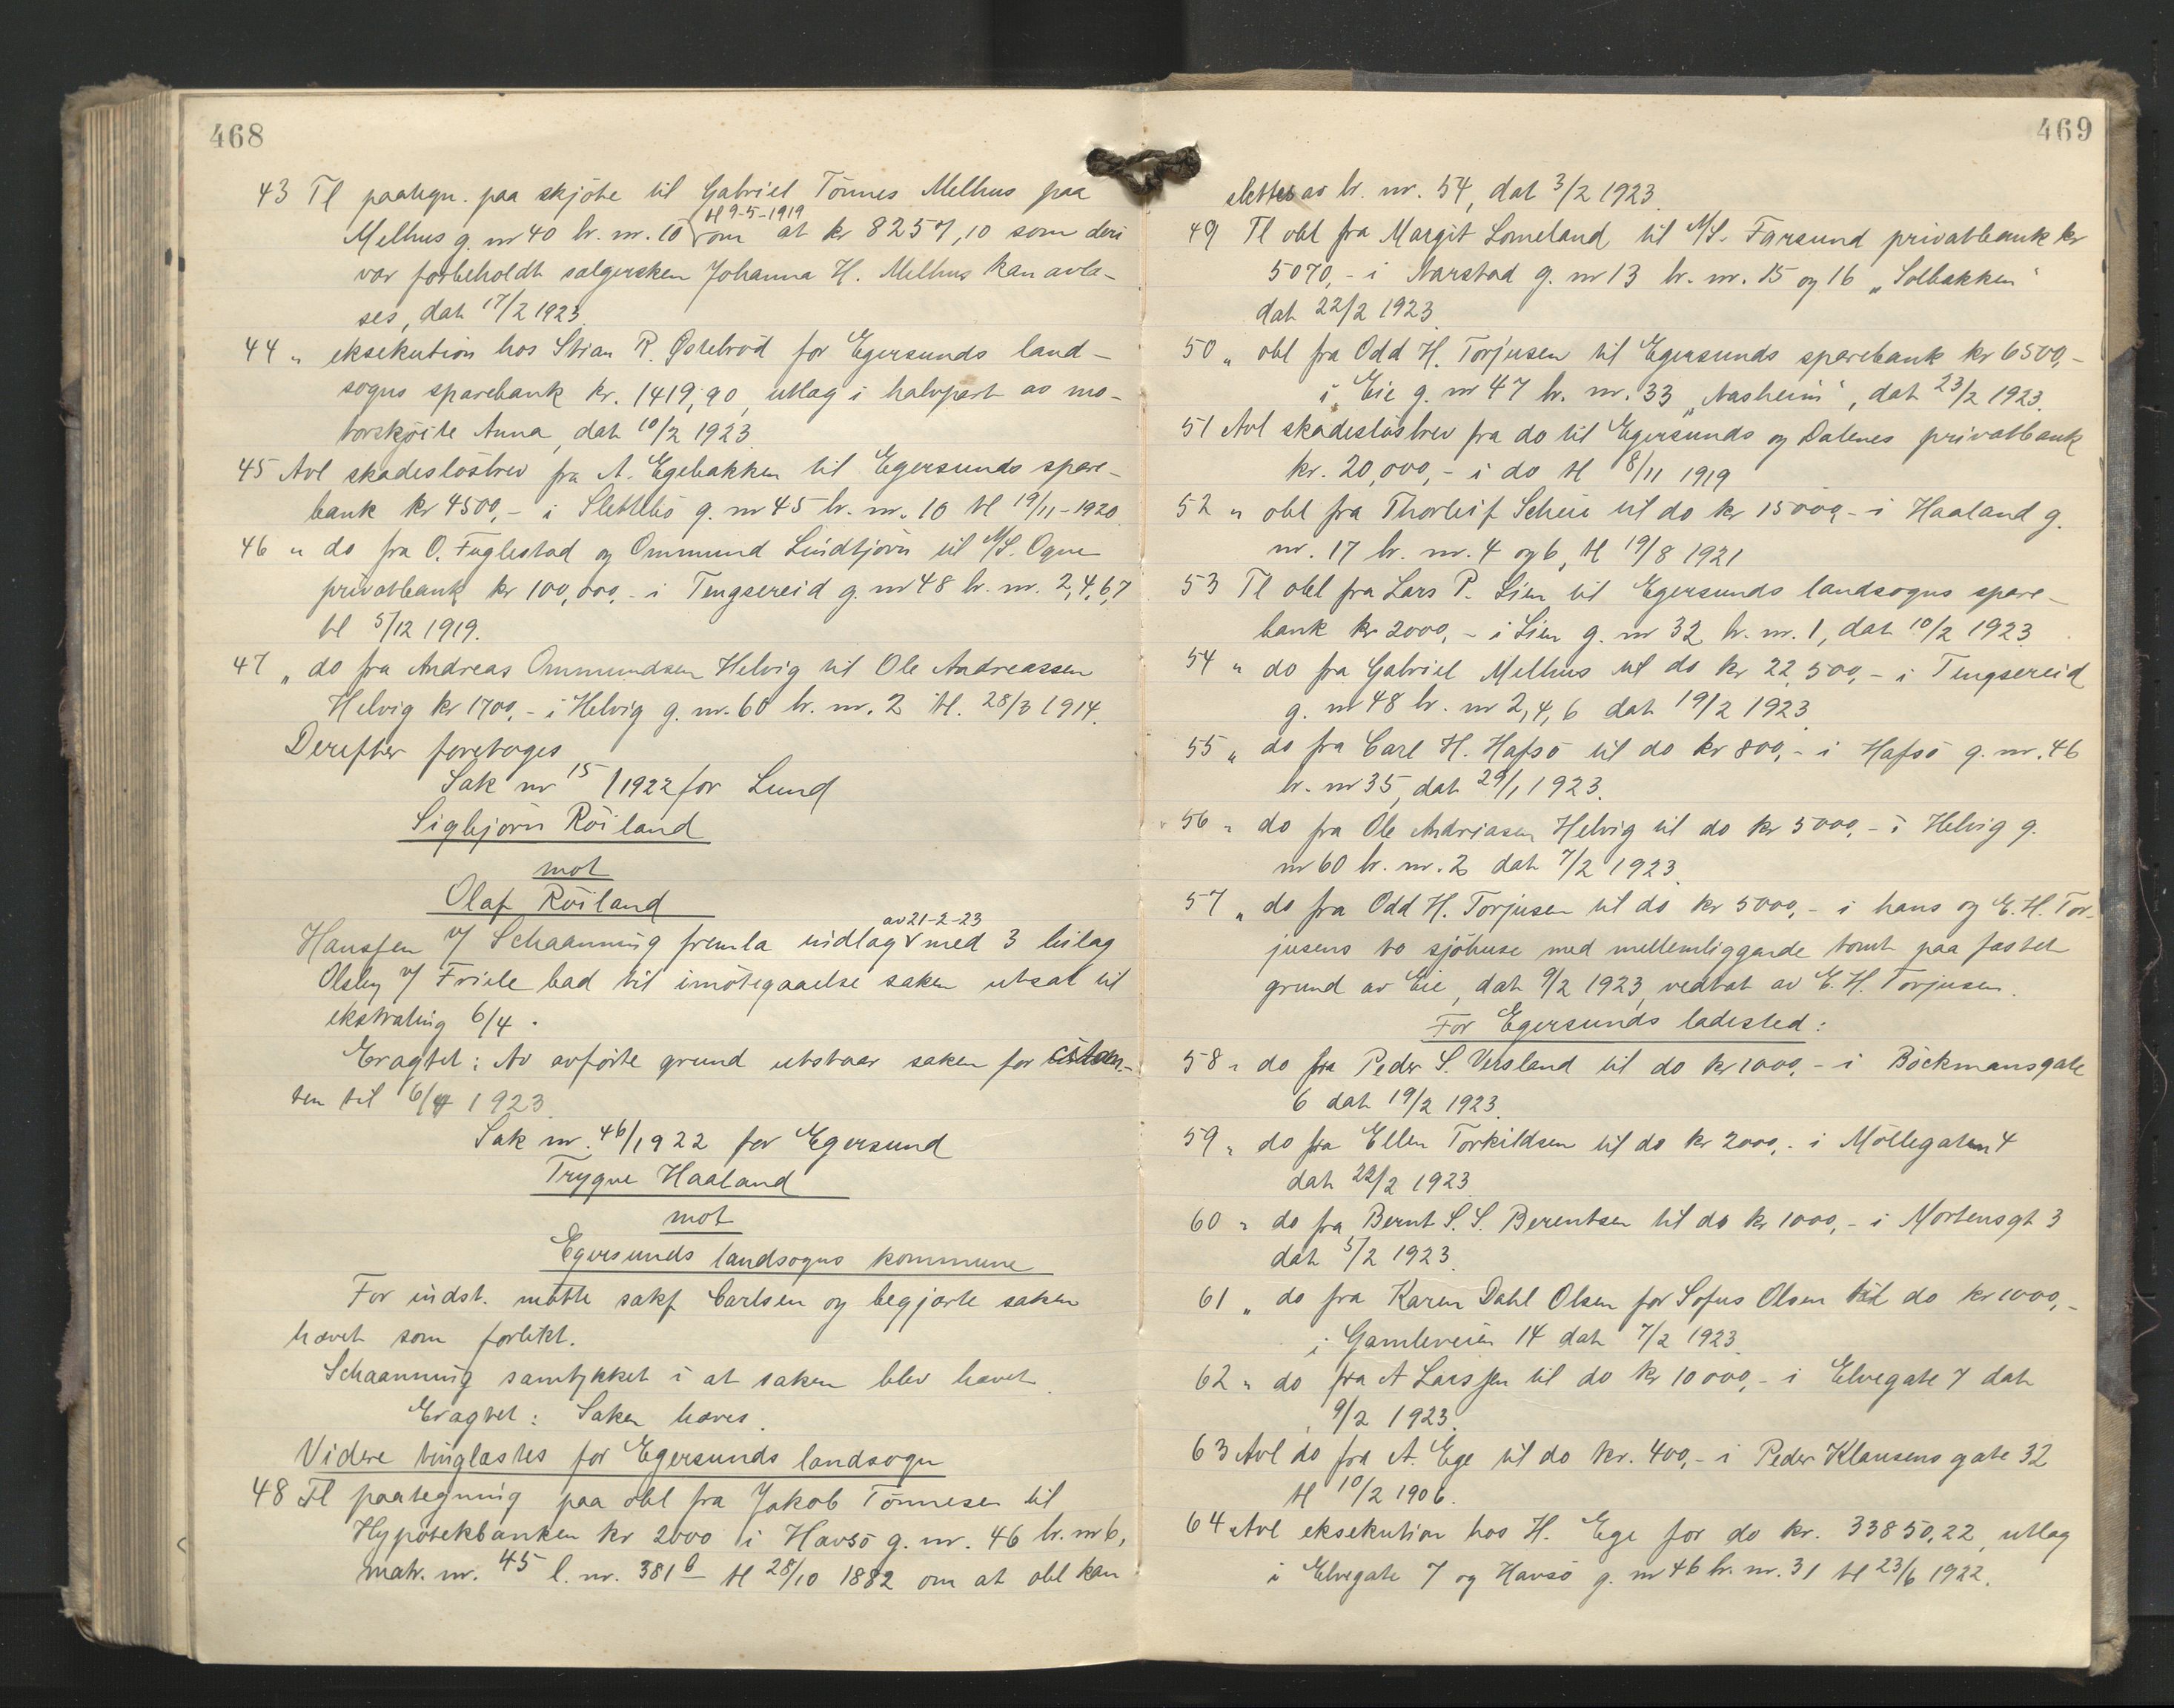 468
43 Tl paategn. paa skjöte til Gabriel Tönnes Melhus paa
tl 9-5-1919
Melhus g. nr 40 br. nr. 10 om at kr 8257,10 som deri
var forbeholdt sælgersken Johanna H. Melhus kan avlæ-
ses, dat 17/2 1923.
44 " eksekution hos Stian R. Östebröd for Egersunds land-
sogns sparebank kr. 1419,90, utlag i halvpart av mo-
torskjöite Anna, dat 10/2 1923
45 Avl skadeslösbrev fra A. Egebakken til Egersunds spare-
bank kr 4500,- i Slettebö g. nr 45 br. nr. 10 tl 19/11-1920
46 " do fra O. Fuglestad og Ommund Lindtjörn til A/S. Ogne
privatbank kr 100,000,- i Tengsereid g. nr 48 br. nr. 2,4,6,7
tl 5/12 1919.
47 " do fra Andreas Ommundsen Helvig til Ole Andreassen
Helvig kr 1700,- i Helvig g. nr. 60 br. nr. 2 tl. 28/3 1914.
Derefter foretoges
Sak nr 15/1922 for Lund
Sigbjörn Röiland
mot
Olaf Röiland
av 21-2-23
Hanssen v/ Schaanning fremla indlag med 3 bilag
Olsby v/ Friele bad til imötegaaelse saken utsat til
ekstrating 6/4.
Eragtet: Av anförte grund utstaar saken for citan-
ten til 6/4 1923.
Sak nr. 46/1922 for Egersund
Trygve Haaland
mot
Egersunds landsogns kommune
For indst. mötte sakf Carlsen og begjærte saken
hævet som forlikt.
Schaanning samtykket i at saken blev hævet.
Eragtet: Saken hæves.
Videre tinglæstes for Egersunds landsogn
48 Tl paategning paa obl fra Jakob Tönnesen til
Hypotekbanken kr 2000 i Havsö g. nr. 46 br. nr 6,
matr. nr. 45 l. nr. 381 b tl 28/10 1882 om at obl kan
469
slettes av br. nr. 54, dat 3/2 1923.
49 Tl obl fra Margit Lomeland til A/S. Farsund privatbank kr
5070,- i Aarstad g. nr 13 br. nr. 15 og 16 „Solbakken"
dat 22/2 1923.
50 " obl fra Odd H. Torjusen til Egersunds sparebank kr 6500,-
i Eie g. nr 47 br. nr. 33 „Aasheim", dat 23/2 1923.
51 Avl skadeslösbrev fra do til Egersunds og Dalenes privatbank
kr. 20,000,- i do tl 8/11 1919
52 " obl fra Thorleif Scheie til do kr 15000,- i Haaland g.
nr. 17 br. nr. 4 og 6, tl 19/8 1921
53 Tl obl fra Lars P. Lien til Egersunds landsogns spare-
bank kr 2000,- i Lien g. nr 32 br. nr. 1, dat 10/2 1923.
54 " do fra Gabriel Melhus til do kr 22,500,- i Tengsereid
g. nr 48 br. nr 2,4,6 dat 19/2 1923
55 " do fra Carl H. Hafsö til do kr 800,- i Hafsö g. nr. 46
br. nr 35, dat 29/1 1923.
56 " do fra Ole Andriasen Helvig til do kr 5000,- i Helvig g.
nr 60 br. nr. 2 dat 7/2 1923.
57 " do fra Odd H. Torjusen til do kr 5000,- i hans og E. H. Tor-
jusens to sjöhuse med mellemliggende tomt paa fæstet
grund av Eie, dat 9/2 1923, vedtat av E. H. Torjusen.
For Egersunds ladested:
58 " do fra Peder S. Versland til do kr 1000,- i Böckmansgate
6 dat 19/2 1923.
59 " do fra Ellen Torkildsen til do kr 2000,- i Möllegaten 4
dat 22/2 1923
60 " do fra Bernt S. S. Berentsen til do kr 1000,- i Mortensgt 3
dat 5/2 1923.
61 " do fra Karen Dahl Olsen for Sofus Olsen til do kr 1000,-
i Gamleveien 14 dat 7/2 1923.
62 " do fra A Larssen til do kr 10000,- i Elvegate 7 dat
9/2 1923.
63 Avl do fra A. Ege til do kr. 400,- i Peder Klausens gate 32
tl 10/2 1906.
64 Avl eksekution hos H. Ege for do kr. 33850.22, utlag
i Elvegate 7 og Havsö g. nr 46 br. nr. 31 tl 23/6 1922.